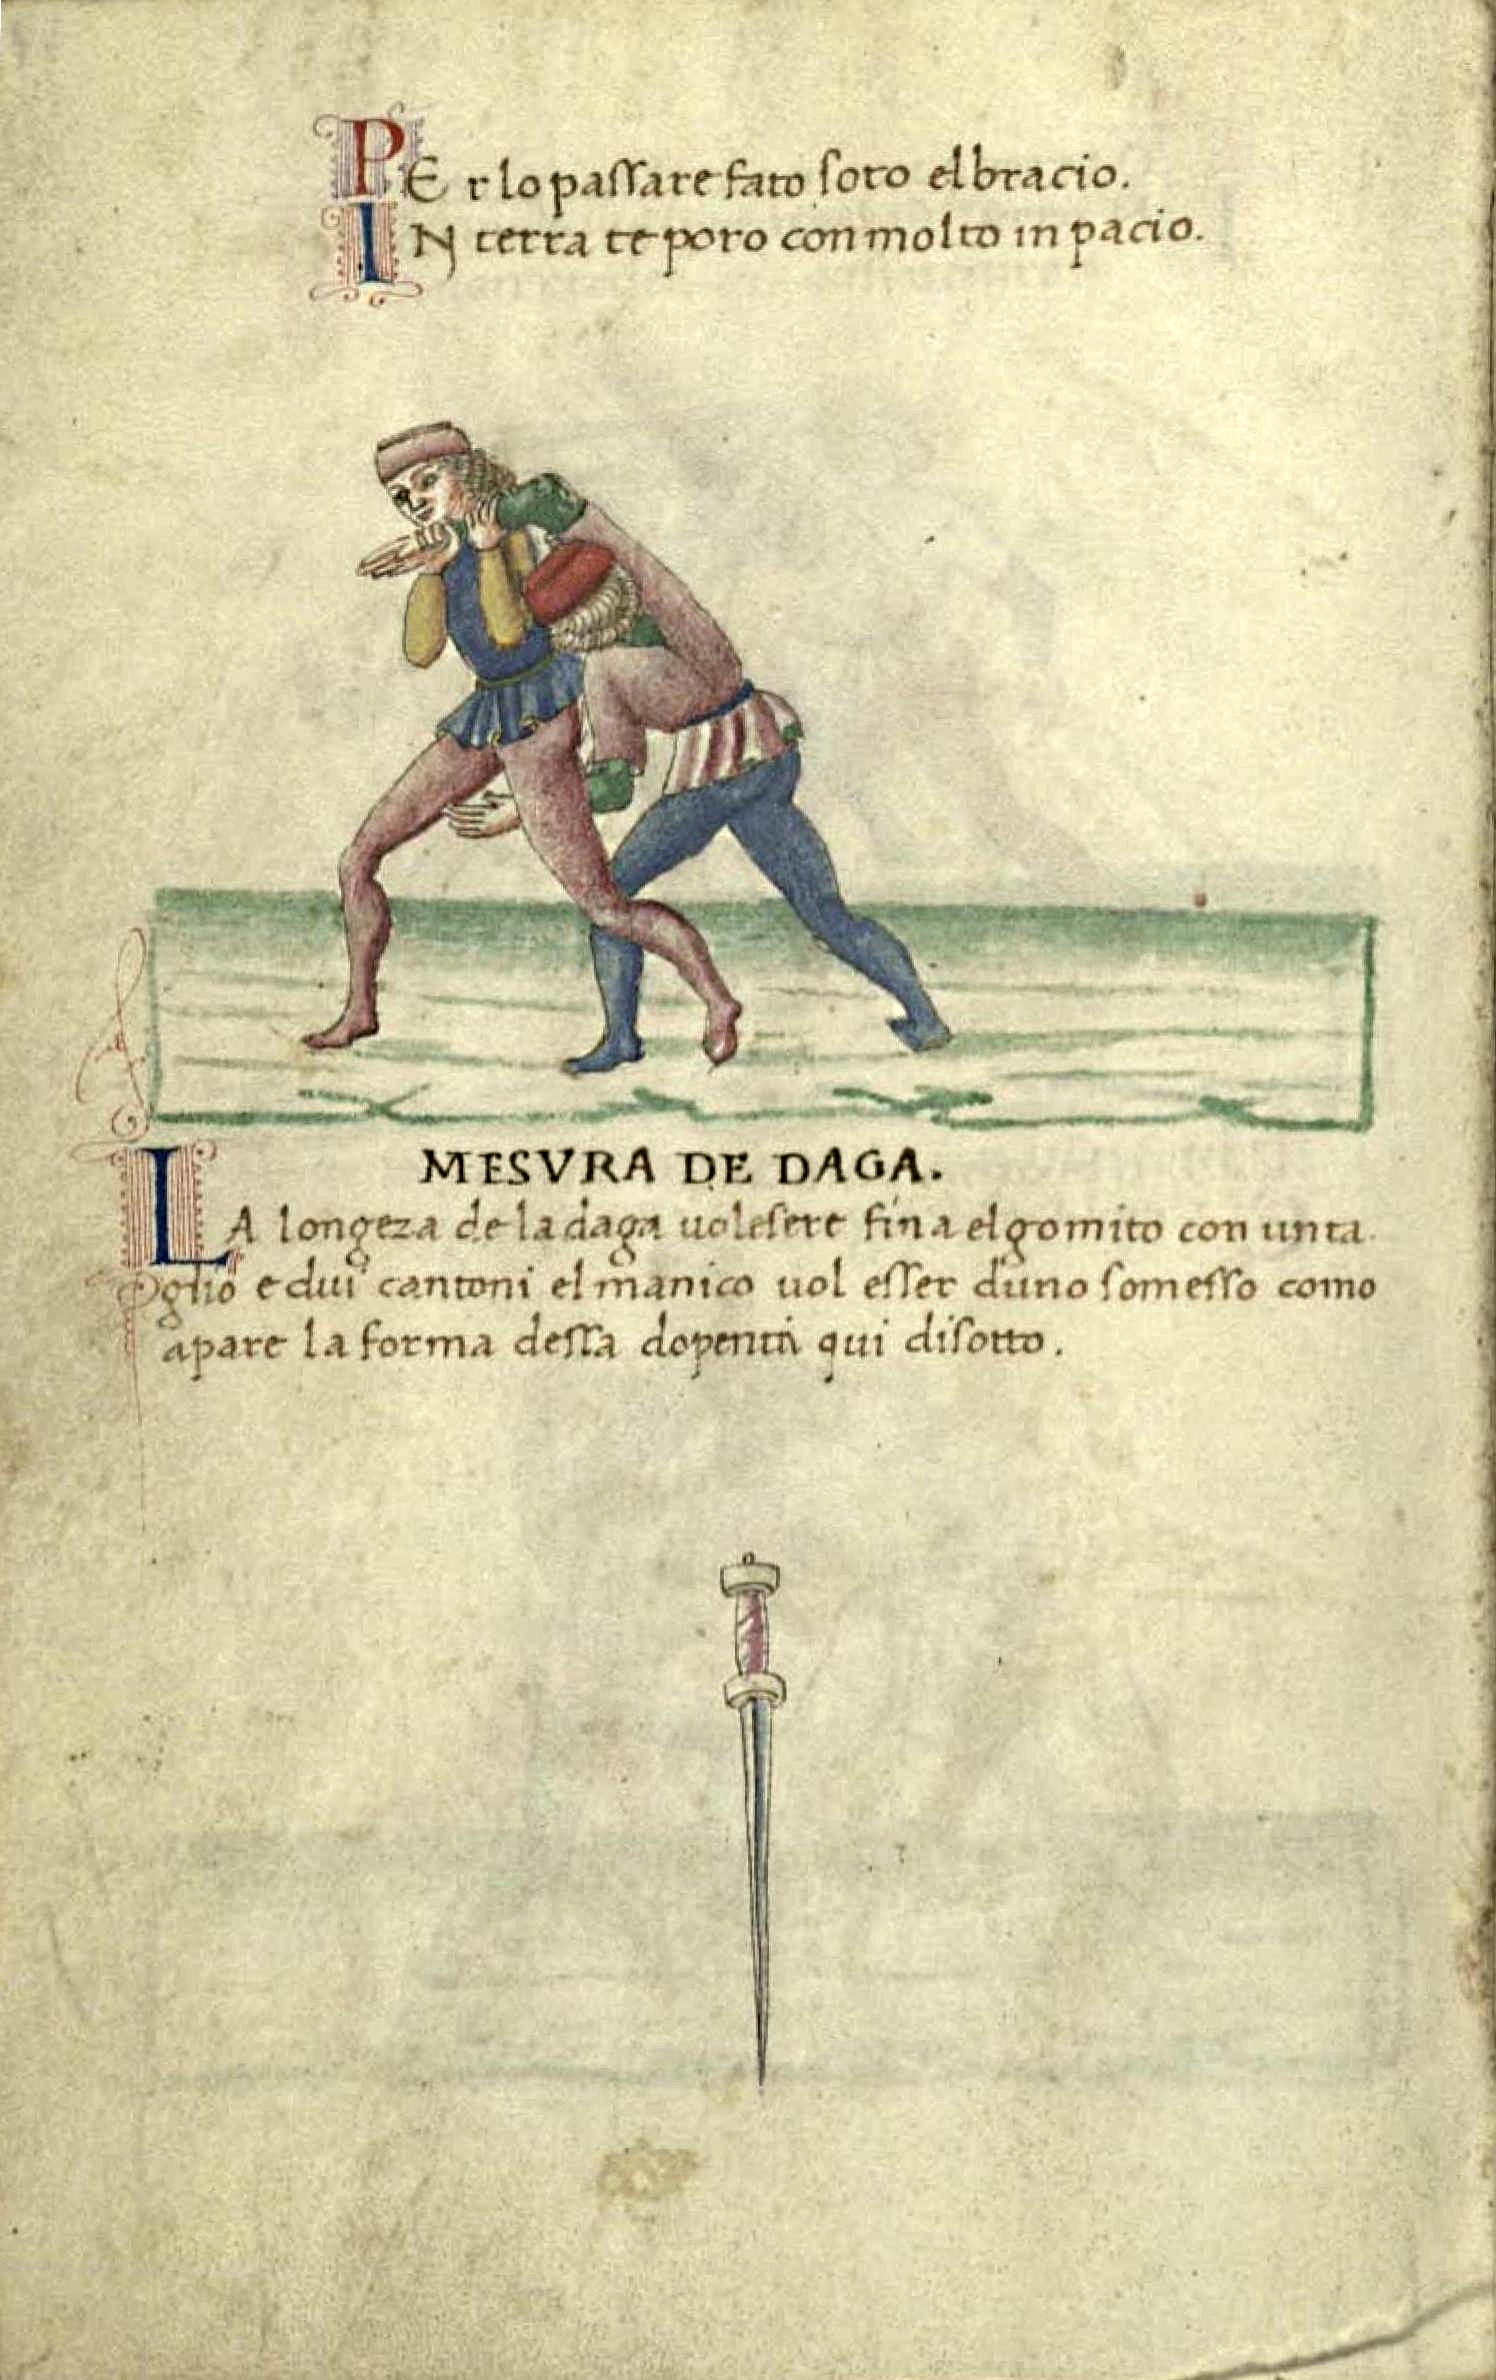 PEr lo passare fato soto el bracio.
IN terra te poro con molto in pacio.
MESVRA DE DAGA.
LA longeza de la daga uol esere fin a el gomito con un ta
glio e dui cantoni el manico uol esser d'uno somesso como
apare la forma dessa depenta qui disotto.